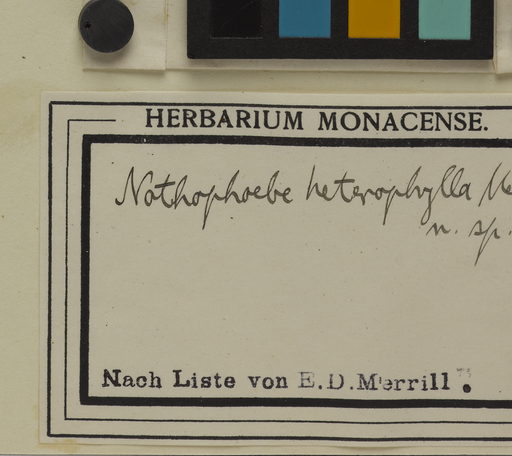 HERBARIUM MONACENSE.
Nothophoebe heterophylla Me
n. sp.
Nach Liste von E.D.Merrill.